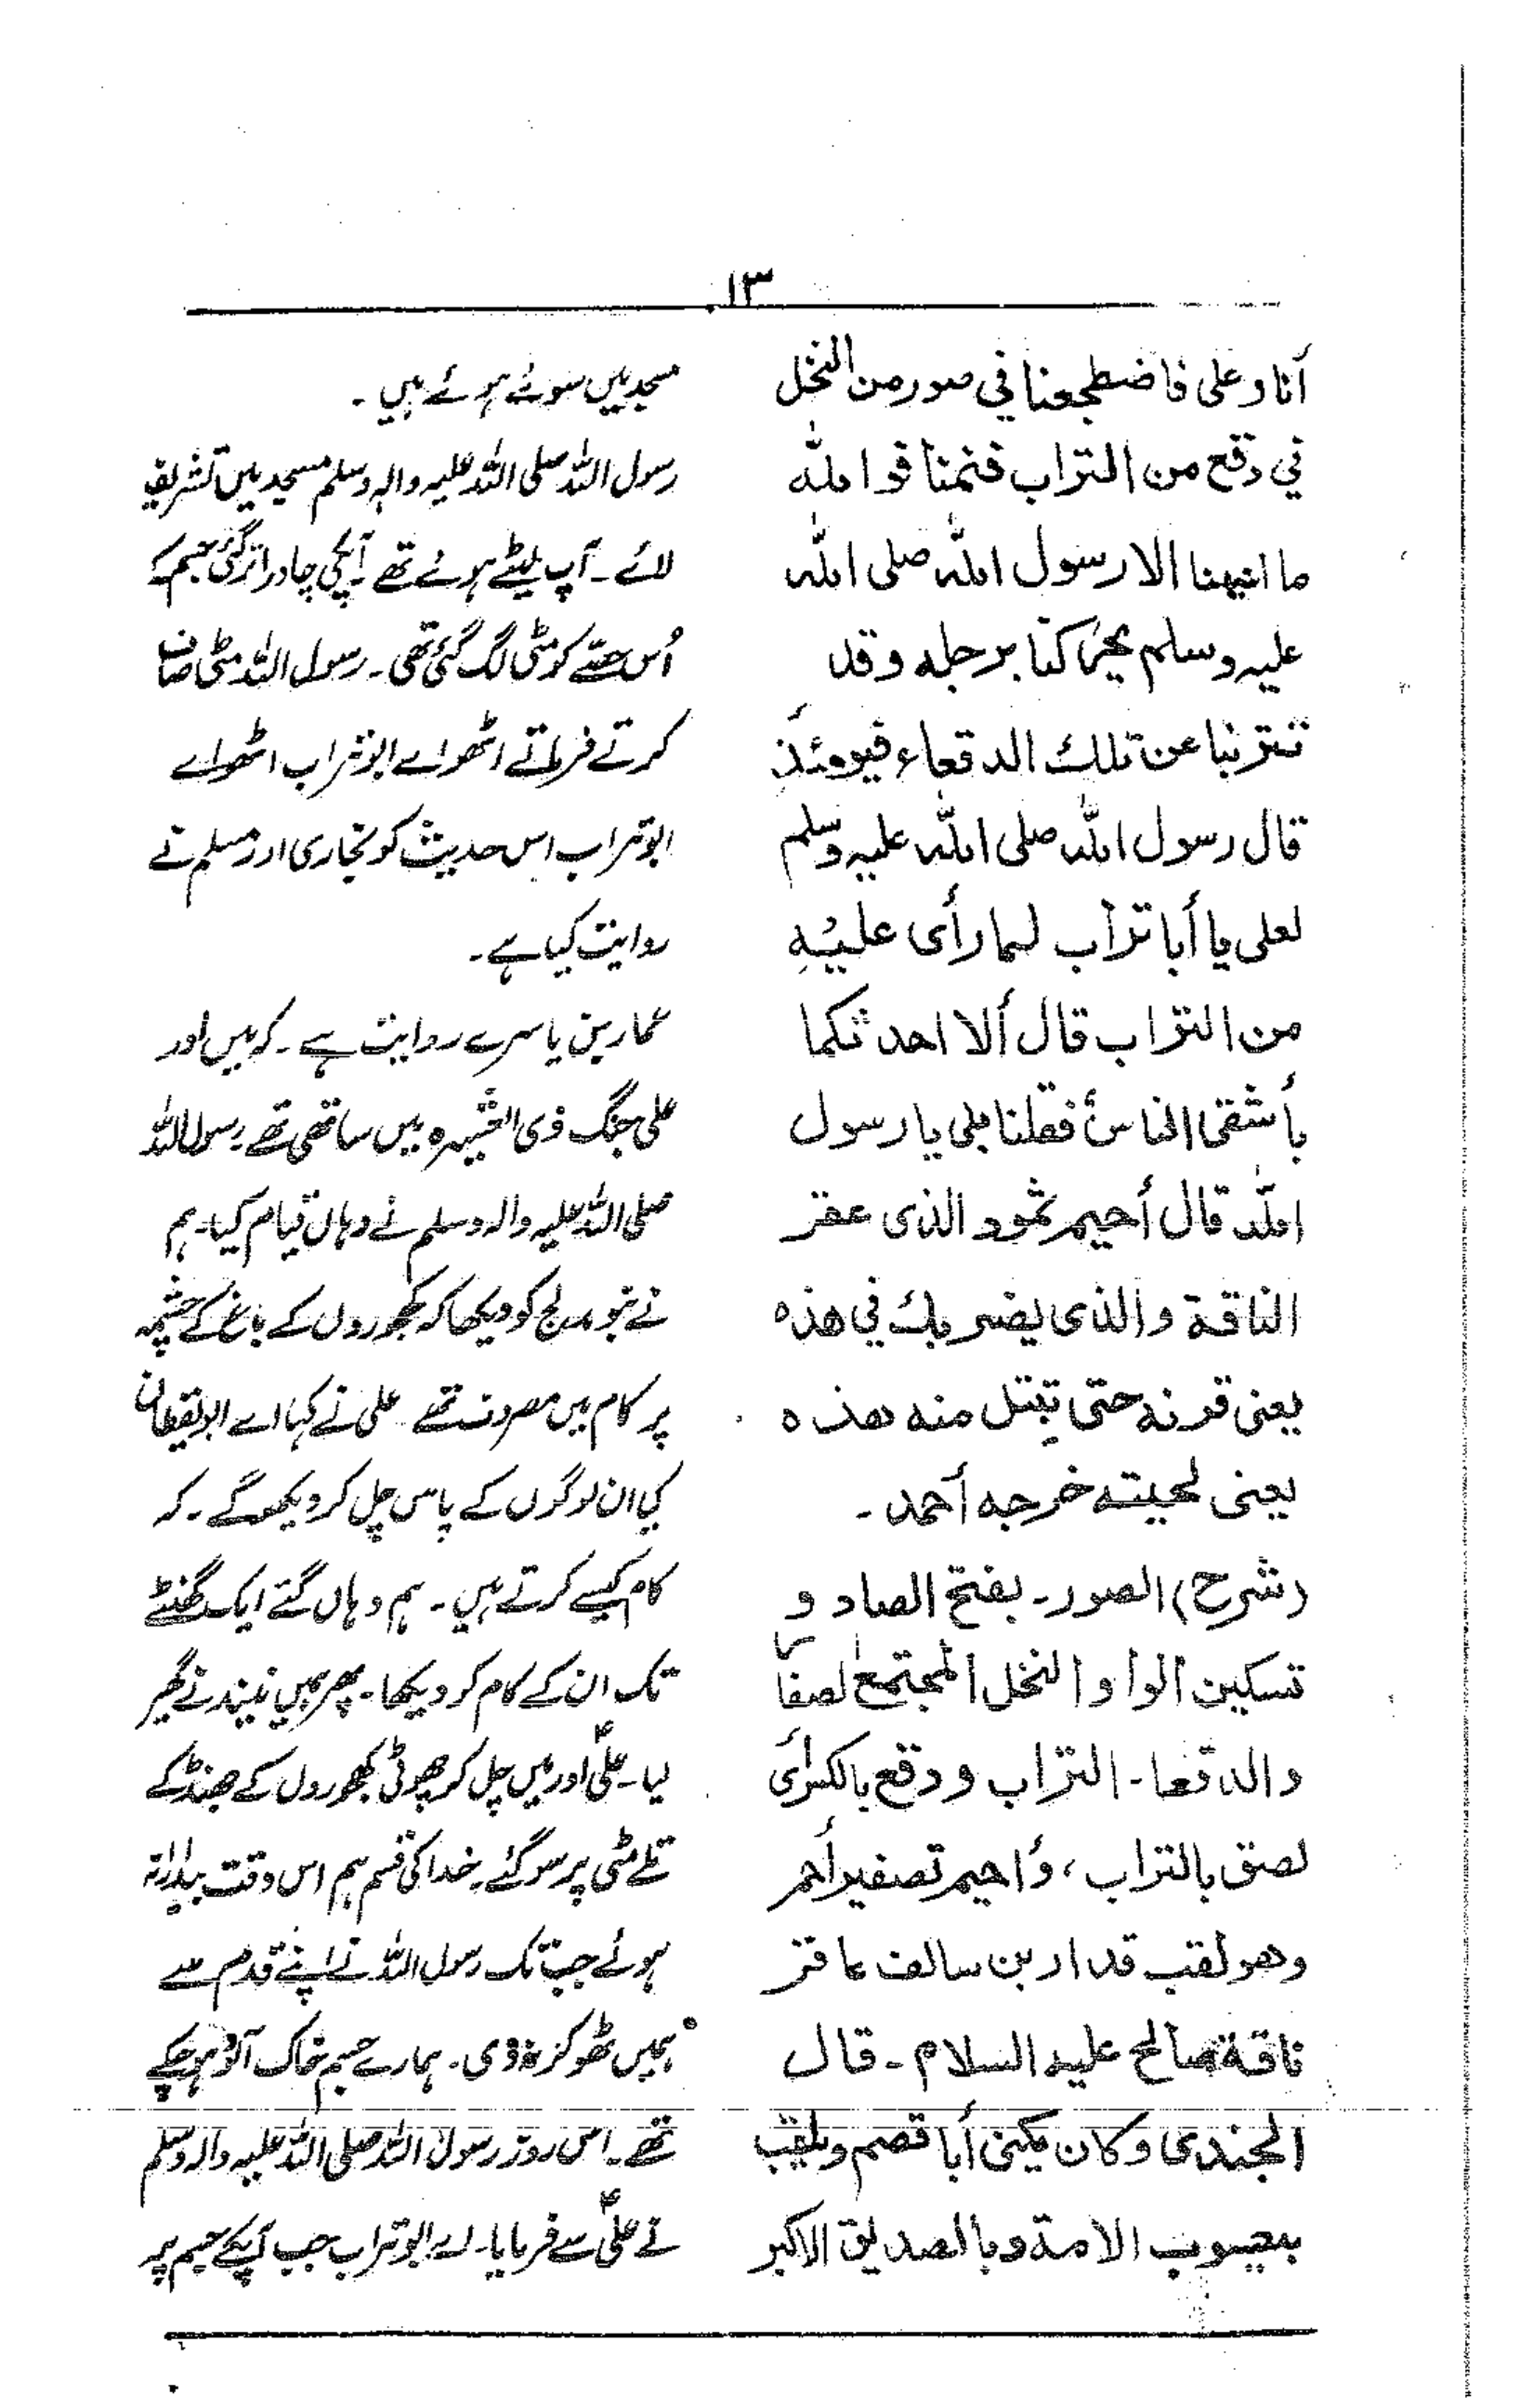 ١٣
أنا وعلى فاضطجعنا في صور من النخل
في دقع من التراب فنمنا فوالله
ما انبهنا الا رسول الله صلى الله
عليه وسلم يحركنا برجله وقد
تتربنا عن تلك الدقعاء فيومئذ
قال رسول الله صلى الله عليه وسلم
لعلى يا أبا تراب لما رأى عليه
من التراب قال ألا احدثكما
بأشقى الناس فقلنا بلى يا رسول
الله قال أحيمر ثمود الذى عقر
الناقة والذى يضربك في هذه
يعنى قرنه حتى تبتل منه هذه
يعنى لحيته خرجه أحمد۔
(شرح) الصور۔ بفتح الصاد و
تسكين الواو النخل المجتمع لصفا
والدقعا۔ التراب ودقع بالكسر أى
لصق بالتراب، وأحيمر تصغير أحمر
وهو لقب قدار بن سالف عاقر
ناقة صالح عليه السلام۔ قال
الجندى وكان يكنى أبا قصم ويلقب
بيعسوب الامة وبالصديق الاكبر
مسجد میں سوئے ہوئے ہیں۔
رسول اللہ صلی اللہ علیہ والہ وسلم مسجد میں تشریف
لائے۔ آپ لیٹے ہوئے تھے۔ آپکی چادر اتر گئی جسم کے
اُس حصّے کو مٹی لگ گئی تھی۔ رسول اللہ مٹی صاف
کرتے فرماتے اٹھو اے ابو تراب اٹھو اے
ابو تراب اس حدیث کو بخاری اور مسلم نے
روایت کیا ہے۔
عمار بن یاسر سے روایت ہے۔ کہ میں اور
علی جنگ ذی العشیرہ میں ساتھی تھے رسول اللہ
صلی اللہ علیہ والہ وسلم نے وہاں قیام کیا۔ ہم
نے بنو مدلج کو دیکھا کہ کھجوروں کے باغ کے چشمہ
پر کام میں مصروف تھے۔ علی نے کہا اے ابو یقظان
کیا ان لوگوں کے پاس چل کر دیکھو گے۔ کہ
کام کیسے کرتے ہیں۔ ہم وہاں گئے ایک گھنٹے
تک ان کے کام کو دیکھا۔ پھر ہمیں نیند نے گھیر
لیا۔ علیؑ اور میں چل کر چھوٹی کھجوروں کے جھنڈ کے
تلے مٹی پر سو گئے۔ خدا کی قسم ہم اس وقت بیدار نہ
ہوئے جب تک رسول اللہ نے اپنے قدم سے
ہمیں ٹھوکر نہ دی۔ ہمارے جسم خاک آلود ہو چکے
تھے۔ اس روز رسول اللہ صلی اللہ علیہ والہ وسلم
نے علیؑ سے فرمایا۔ اے ابو تراب جب آپکے جسم پر